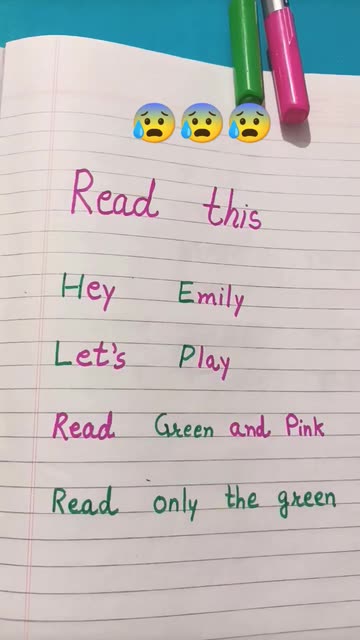 Read this
Hey Emily
Let's Play
Read Green and Pink
Read only the green